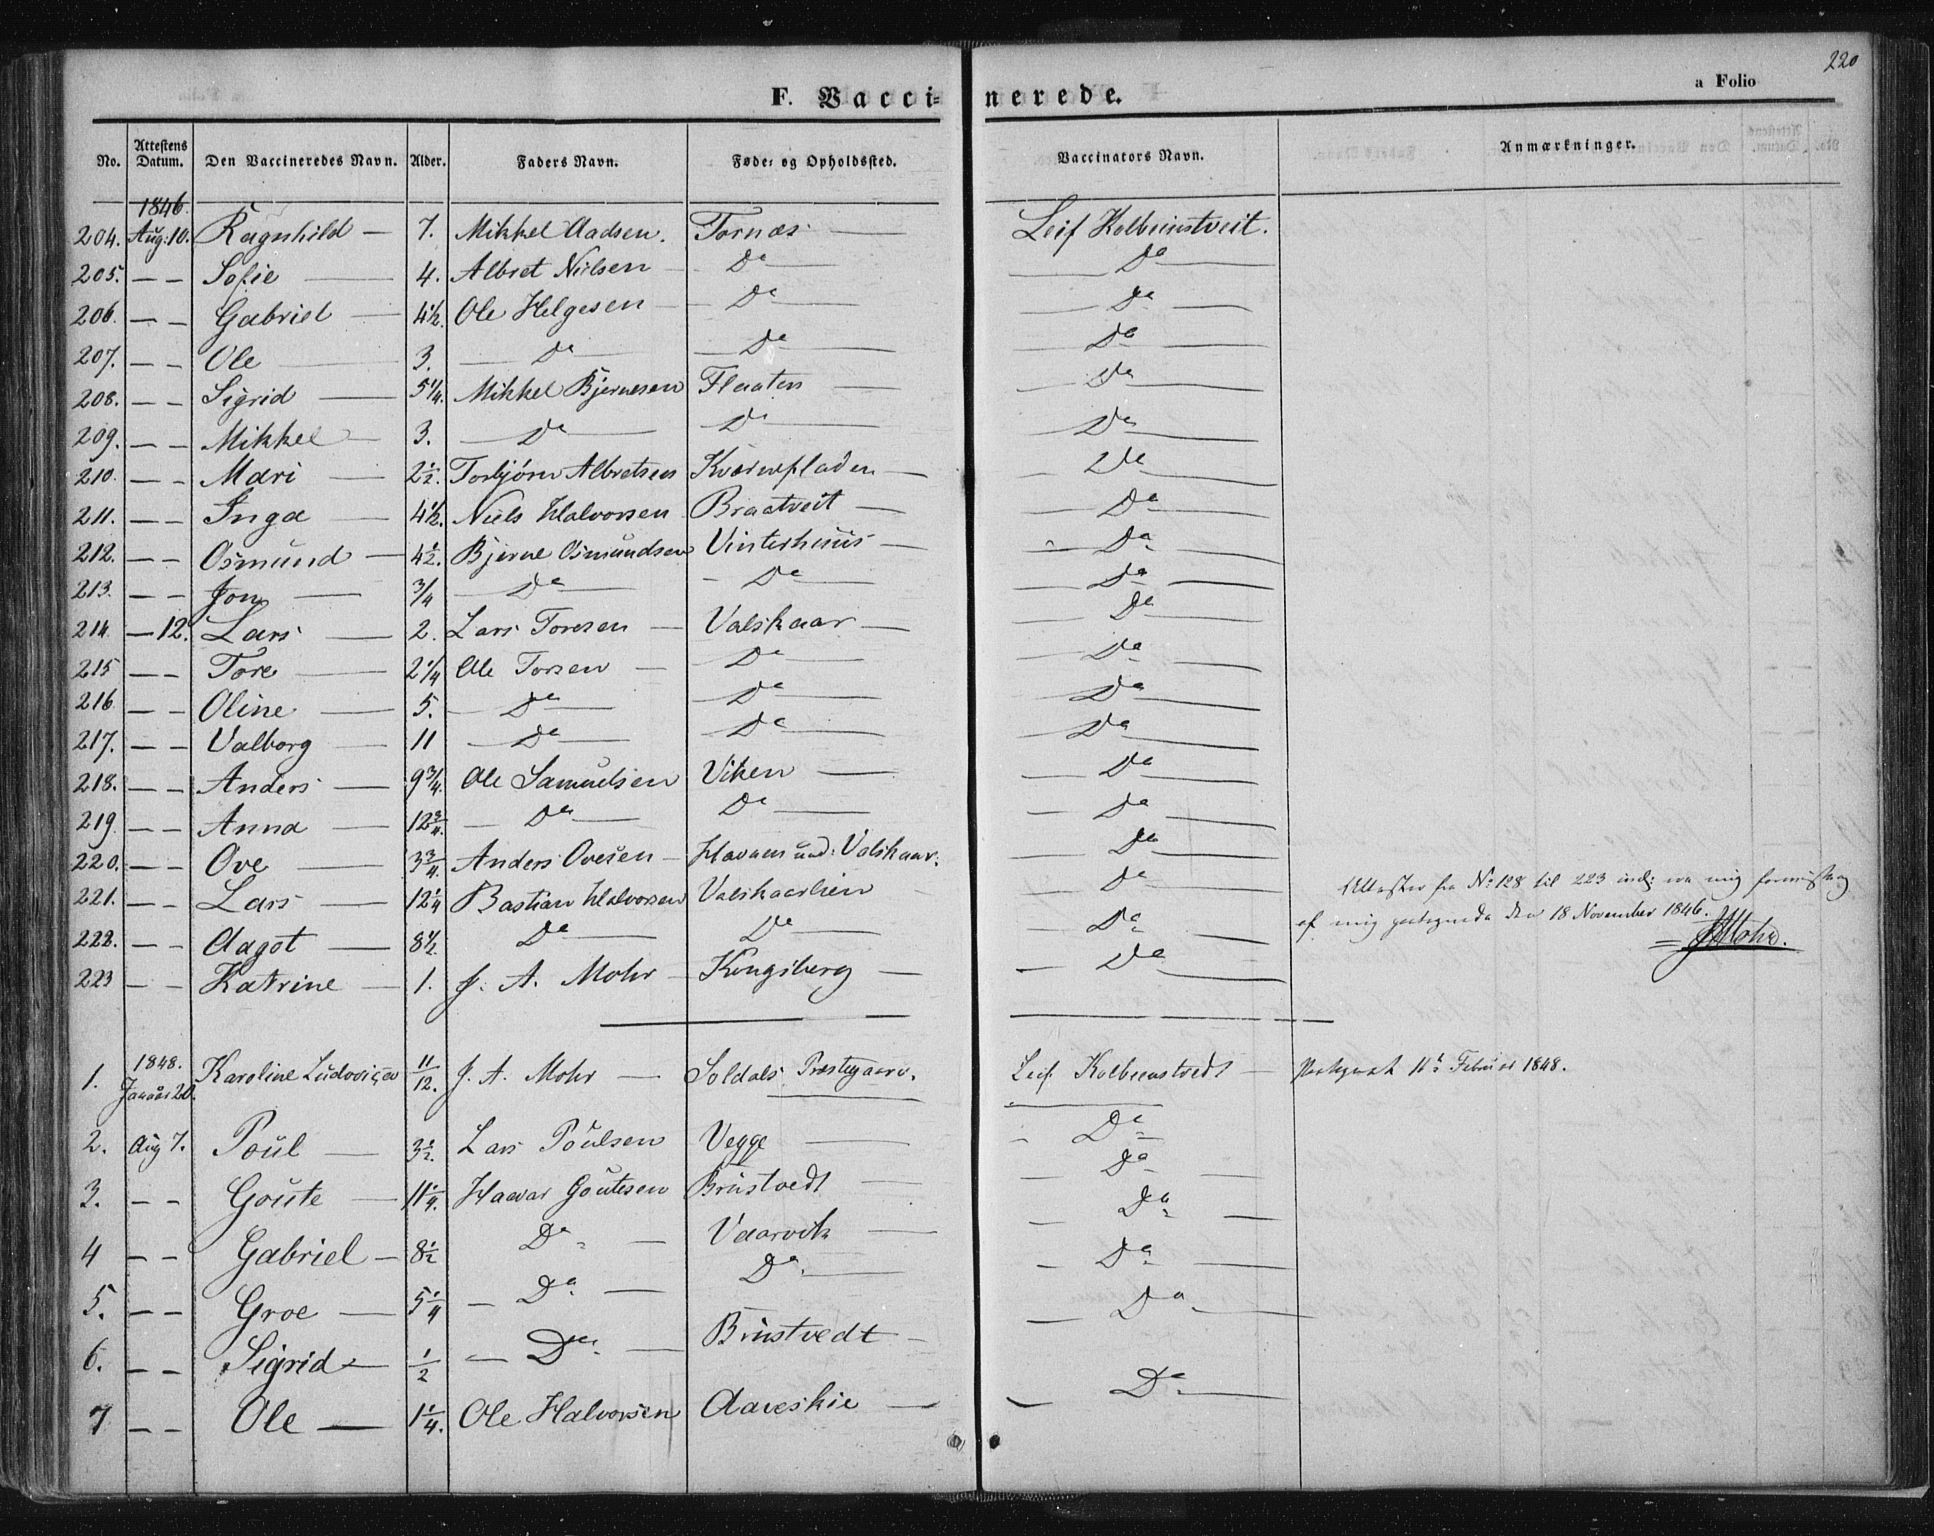 220
F. Vaccinerede.
a Folio
No. Attestens Datum. Den Vaccineredes Navn. Alder. Faders Navn. Føde- og Opholdssted. Vaccinators Navn. Anmærkninger.
1846.
204. Aug: 10. Ragnhild — 7. Mikkel Aadsen. Tornæs — Leif Kolbeinstveit.
205. — — Sofie — 4. Albret Nilsen — Do — Do
206. — — Gabriel — 4½. Ole Helgesen — Do — Do
207. — — Ole — 3. — Do — Do — Do
208. — — Sigrid — 5¼. Mikkel Bjernesen Flaaten — Do
209. — — Mikkel — 3. — Do — Do — Do
210. — — Mari — 2½. Torbjörn Albretsen Kværnfladen — Do
211. — — Inga — 4½. Niels Halvorsen Braatveit — Do
212. — — Osmund — 4½. Bjerne Osmundsen Vinterhuus — Do
213. — — Jon — ¾ — Do — Do — Do
214. — 12. Lars — 2. Lars Toresen — Valskaar — Do
215 — — Tore — 2¼ Ole Torsen — Do — Do
216 — — Oline — 5. — Do — Do — Do
217. — — Valborg — 11 — Do — Do — Do
218. — — Anders — 9¾. Ole Samuelsen Viken — Do
219 — — Anna — 12¾. — Do — Do — Do
220. — — Ove — 3¾. Anders Ovesen — Havnen und: Valskaar. Do
221. — — Lars — 12¼ Bastian Halvorsen Valskaarlien — Do
222. — — Aagot — 8½. Do — Do — Do
223 — — Katrine — 1. J. A. Mohr — Kongsberg — Do
fra No 128 til 223
af mig den 18 November 1846.
Mohr.
1. 1848. Januar 20. Karoline Ludoviça 11/12. J. A. Mohr — Soldals Præstegaard. Leif Kolbeenstvedt — 11te Februar 1848.
2. Aug 7. Poul — 3½. Lars Poulsen Vegge — Do
3. — — Goute — 11¼. Haavar Goutesen Brustvedt — Do
4 — — Gabriel — 8½ Do — Vaarvik — Do
5. — — Groe — 5¼ — Do — Do — Do
6. — — Sigrid — ½ — Do — Brustvedt — Do
7 — — Ole — 1¼. Ole Halvorsen Aareskie — Do